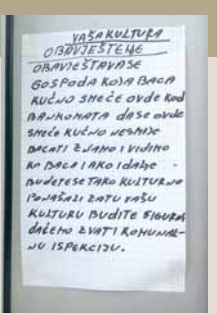 VAŠA KULTURA
OBAVJEŠTENJE
OBAVJEŠTAVASE
GOSPODA KOJA BACA
KUĆNO SMEĆE OVDE KOD
BANKOMATA DASE OVDE
SMEĆE KUĆNO NESMIJE
BACATI ZNAMO I VIDIMO
KO BACA I AKO I DALJE
BUDETE SE TAKO KULTURNO
PONAŠALI ZATU VAŠU
KULTURU BUDITE SIGURNI
DAĆEMO ZVATI KOMUNAL-
NU ISPEKCIJU.